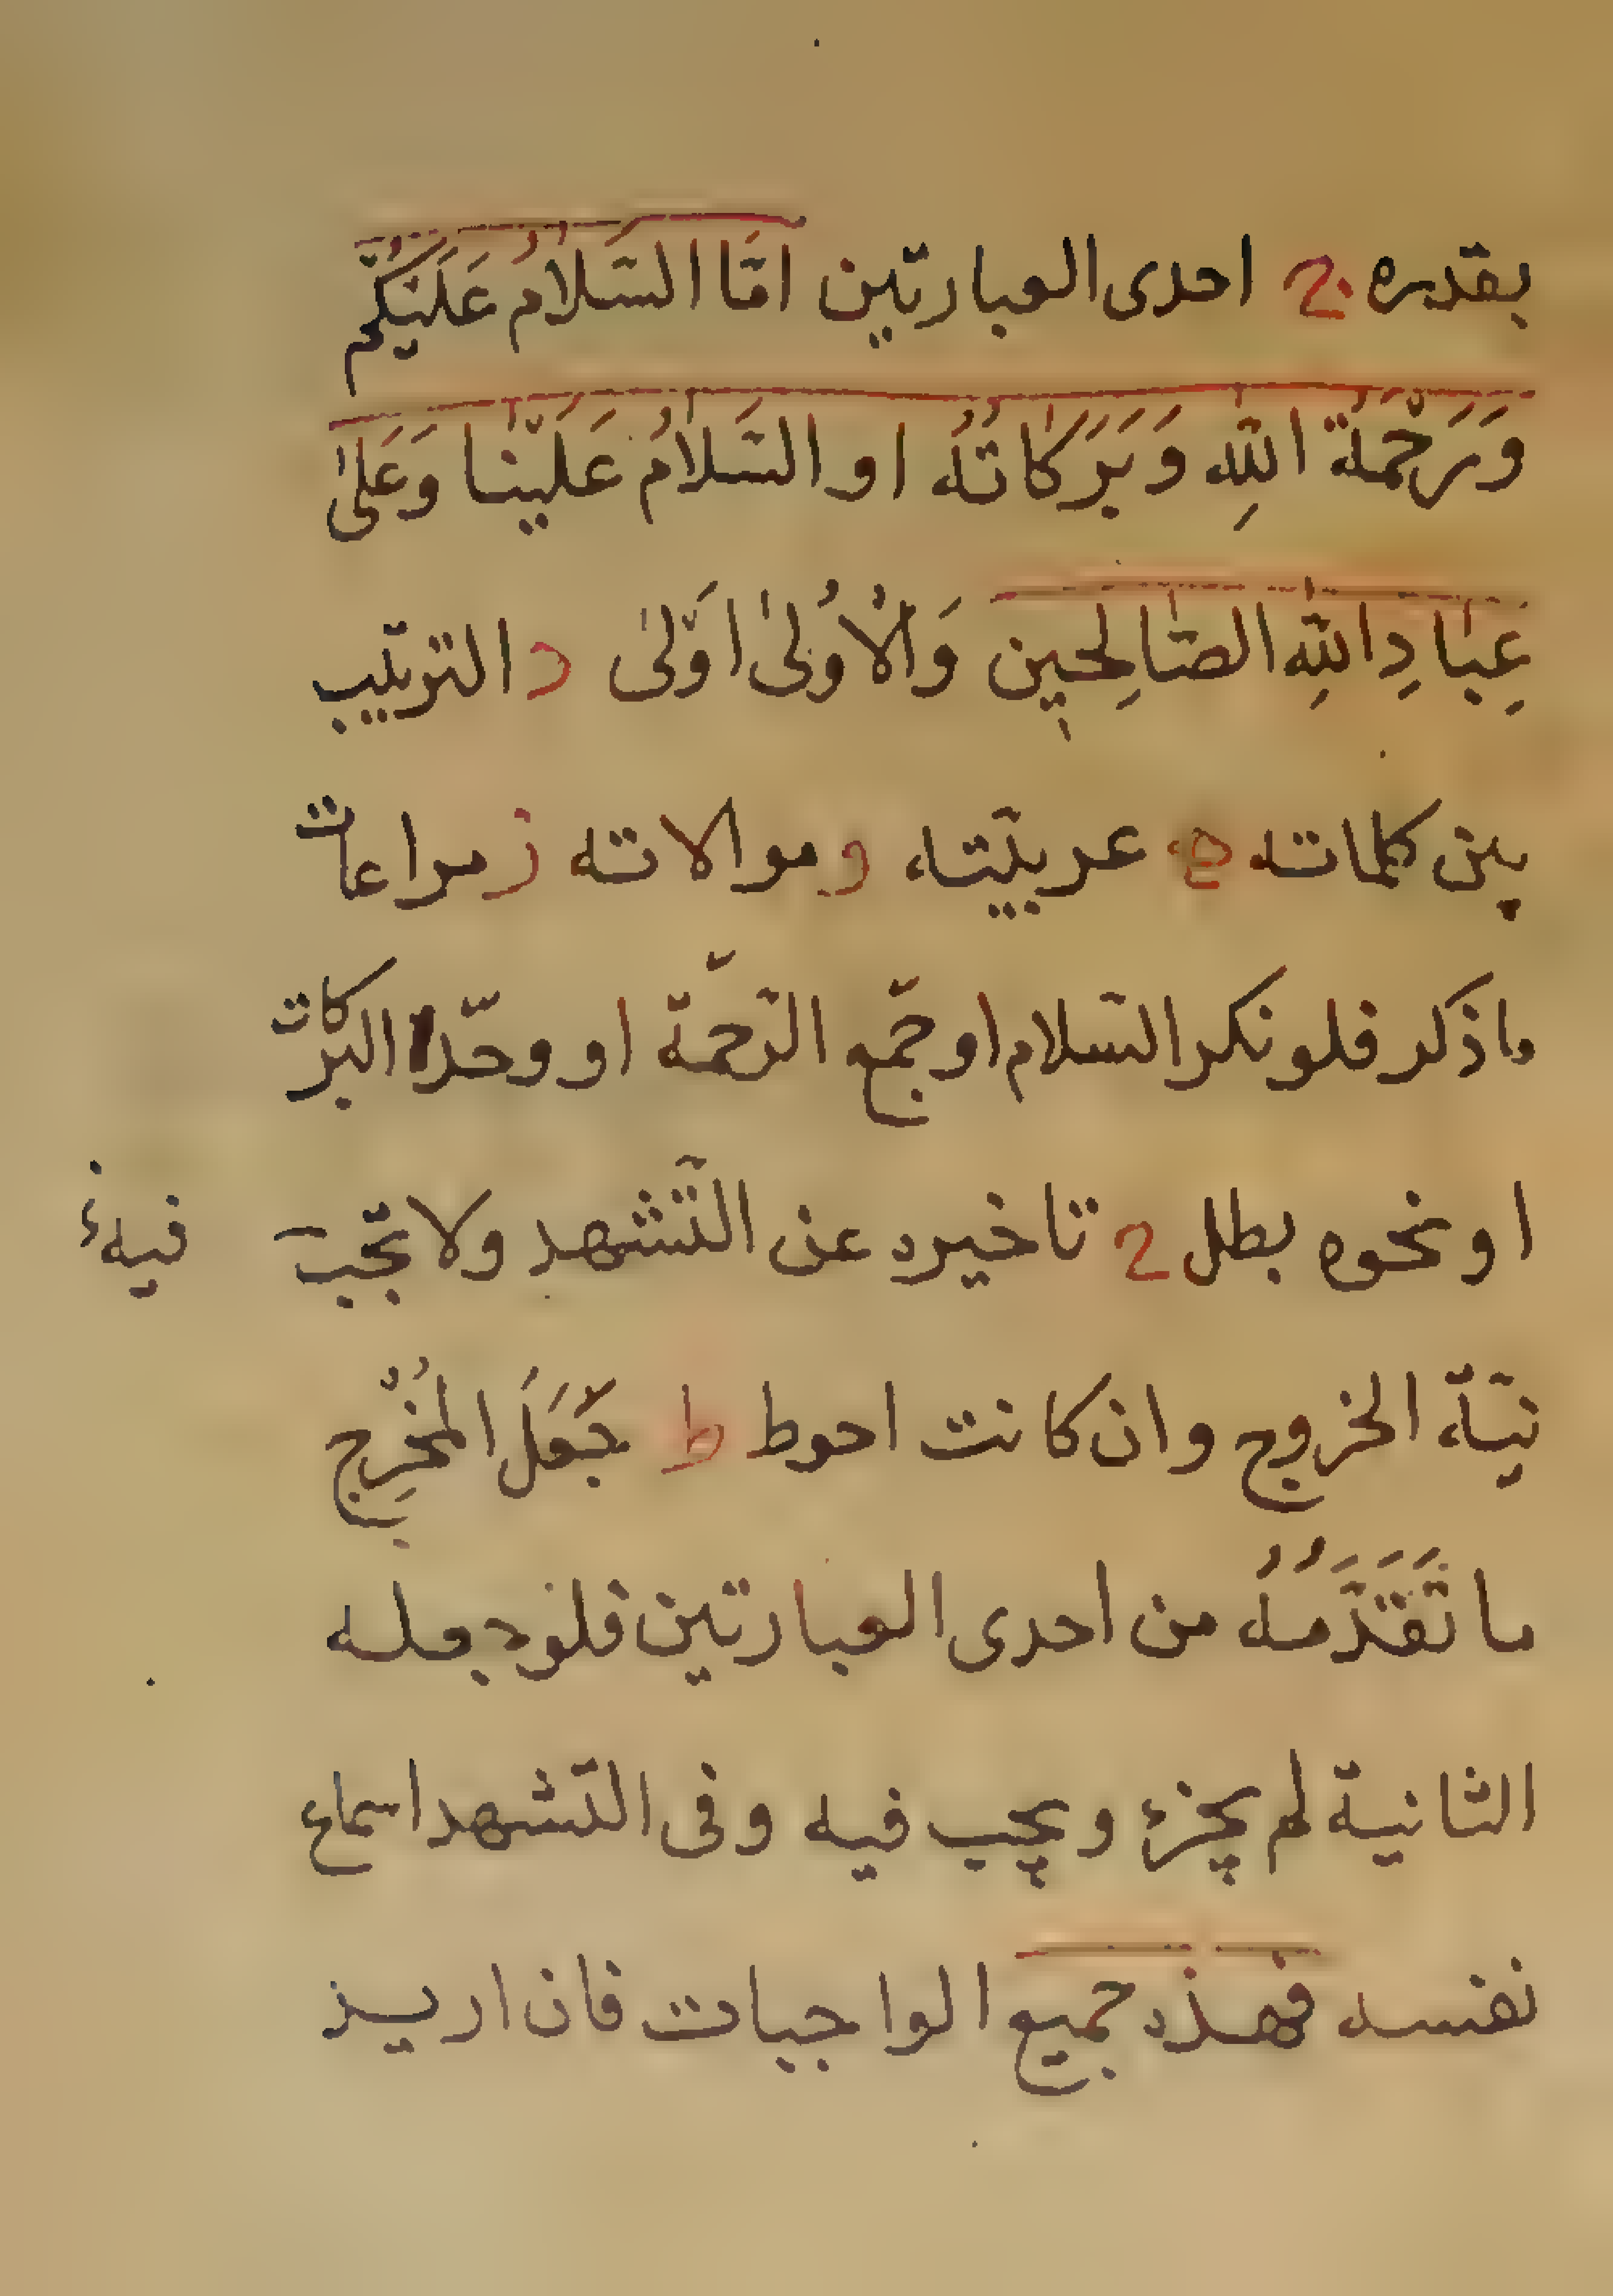 بقدره ج احدى العبارتين امّا السّلامُ عَلَيْكُمْ
وَرَحْمَةُ اللّٰهِ وَبَرَكاتُهُ او السَّلامُ عَلَيْنا وَعَلىٰ
عِبادِ اللّٰهِ الصّالِحين وَالْاُولىٰ اَوْلىٰ د الترتيب
بين كلماته ه عربيّته و موالاته ز مراعات
ما ذكر فلو نكر السّلام او جمّع الرّحمة او وحّد البركات
او نحوه بطل ح تاخيره عن التّشهد ولا تجب فيه
نيّة الخروج وان كانت احوط ط جَعَلَ المُخْرِج
ما تَقَدَّمَهُ من احدى العبارتين فلو جعله
الثانية لم يجزئ ويجب فيه وفى التّشهد اسماع
نفسه فهذه جميع الواجبات فان اريد